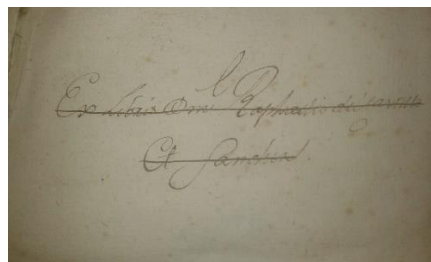 Ex Libris Dni Raphaelis de
Et Sanchez